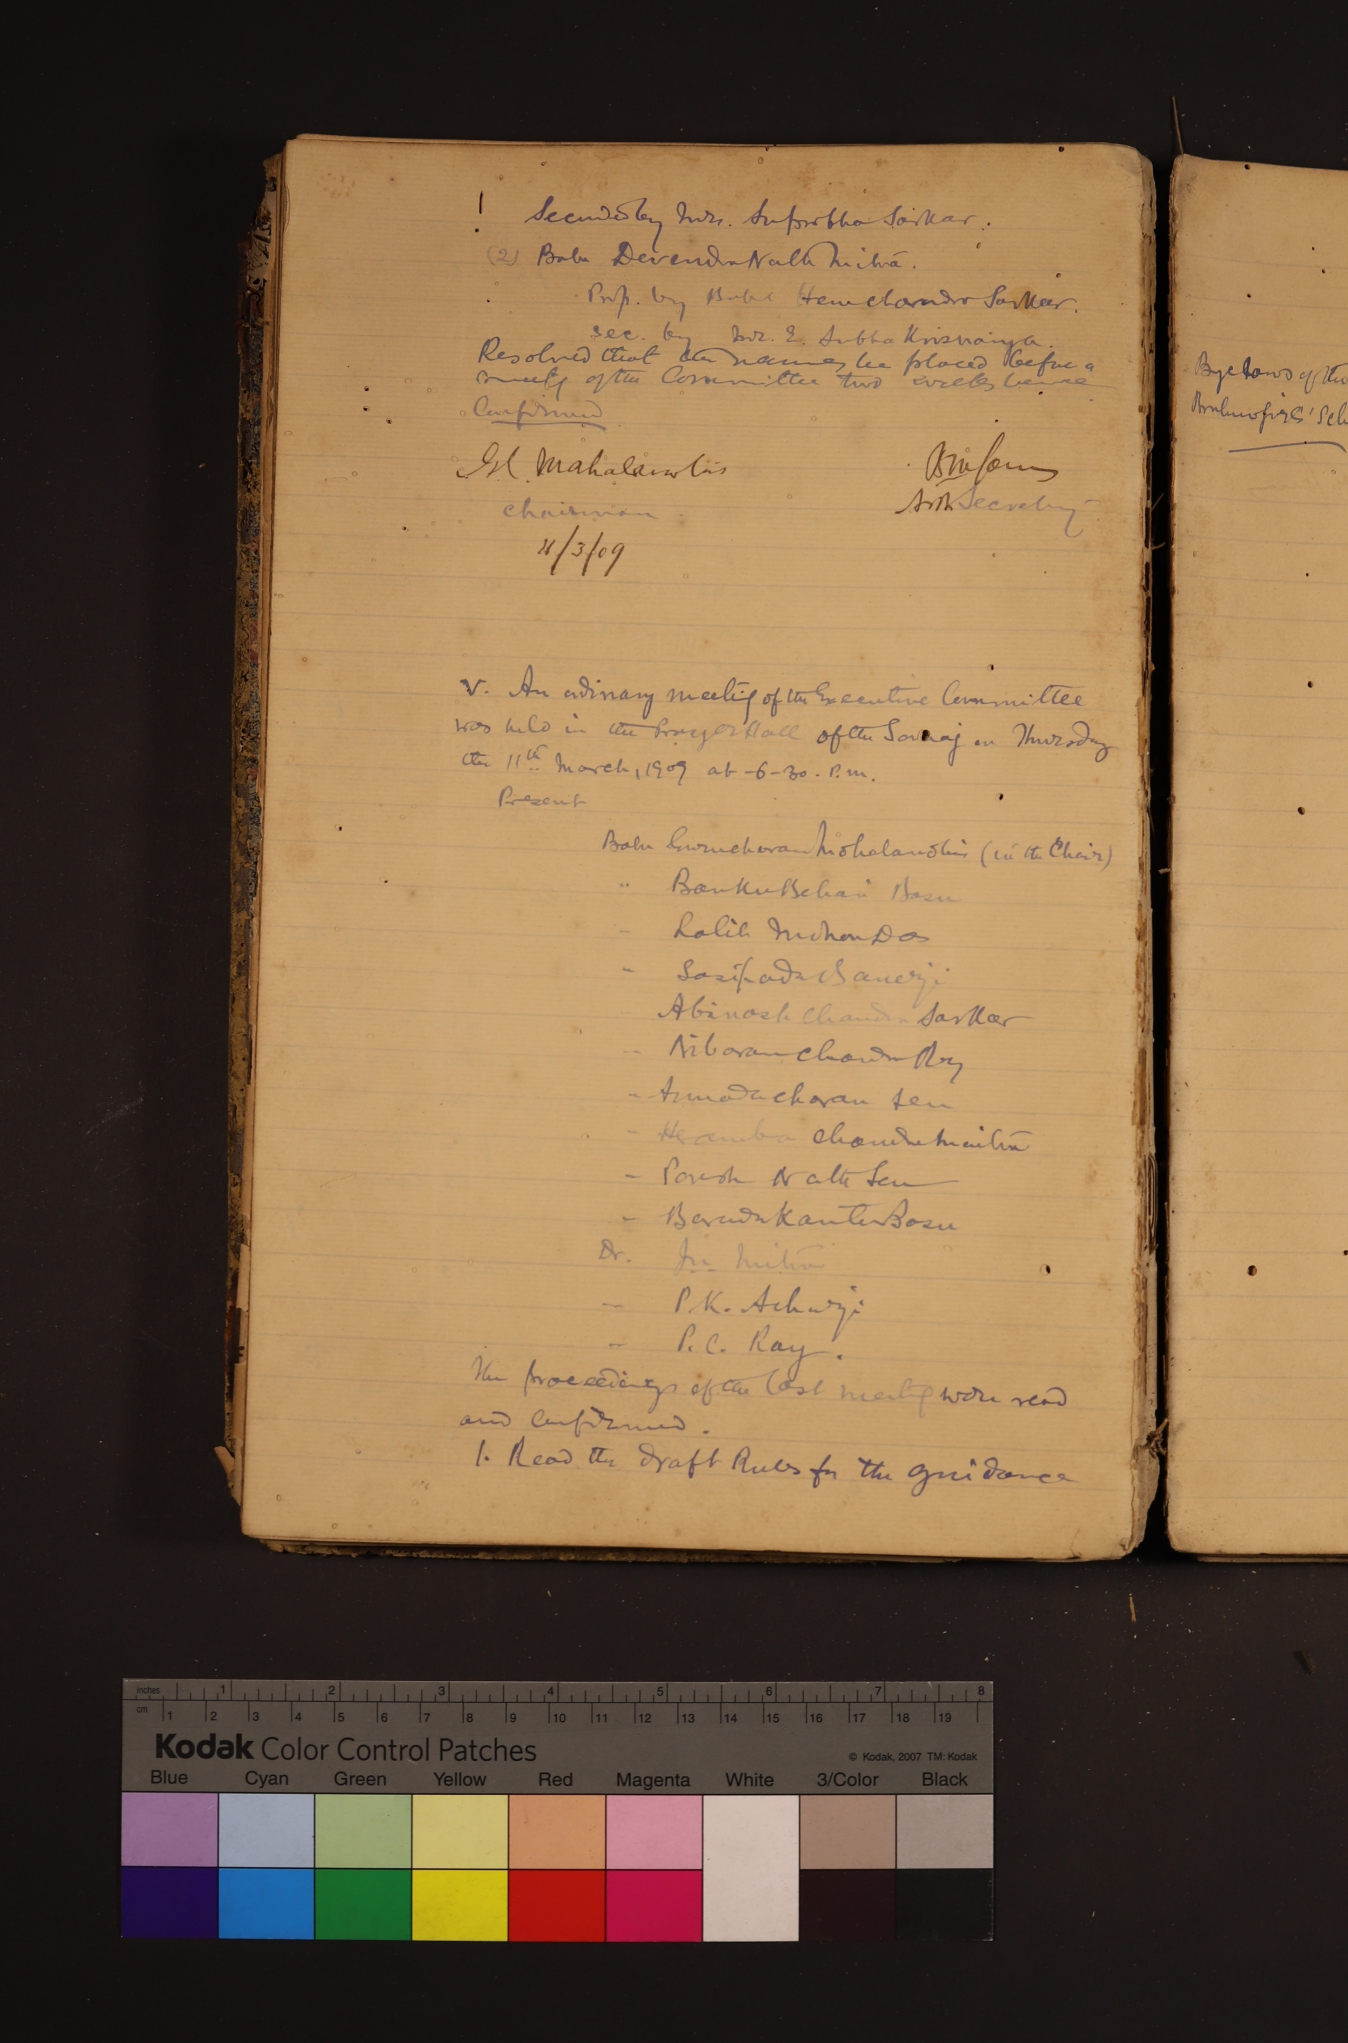 Seconded by Mrs. Suprobha Sarkar.
(2) Babu Devendra Nath Mitra.
Prop. by Babu Hem chandra Sarkar.
Sec. by Mr. E. Subba Krisnaiya.
Resolved that the names be placed before a
meetg of the Committee two weeks hence
Confirmed
G. C. Mahalanobis
Chairman
Asst Secretary
11/3/09
V. An ordinary meeting of the Executive Committee
was held in the Prayer Hall of the Samaj on Thursday
the 11th March, 1909 at 6-30. P.m.
Present
Babu Guruchoran Mohalanobis (in the Chair)
" Banku Behari Basu
" Lalit Mohon Das
" Sasipada Banerji
Abinash Chandra Sarkar
" Nibaran Chandra Roy
" Annoda charan Sen
" Heramba chandra Maitra
" Paresh Nath Sen
" Barada Kanta Basu
Dr. Mitra
" P. K. Acharji
" P. C. Ray.
The proceedings of the last meeting were read
and confirmed.
1. Read the draft Rules for the guidance
Bye laws of the
Brahmo girls' Sch
inches 1 2 3 4 5 6 7 8
cm 1 2 3 4 5 6 7 8 9 10 11 12 13 14 15 16 17 18 19
Kodak Color Control Patches
© Kodak, 2007 TM: Kodak
Blue Cyan Green Yellow Red Magenta White 3/Color Black